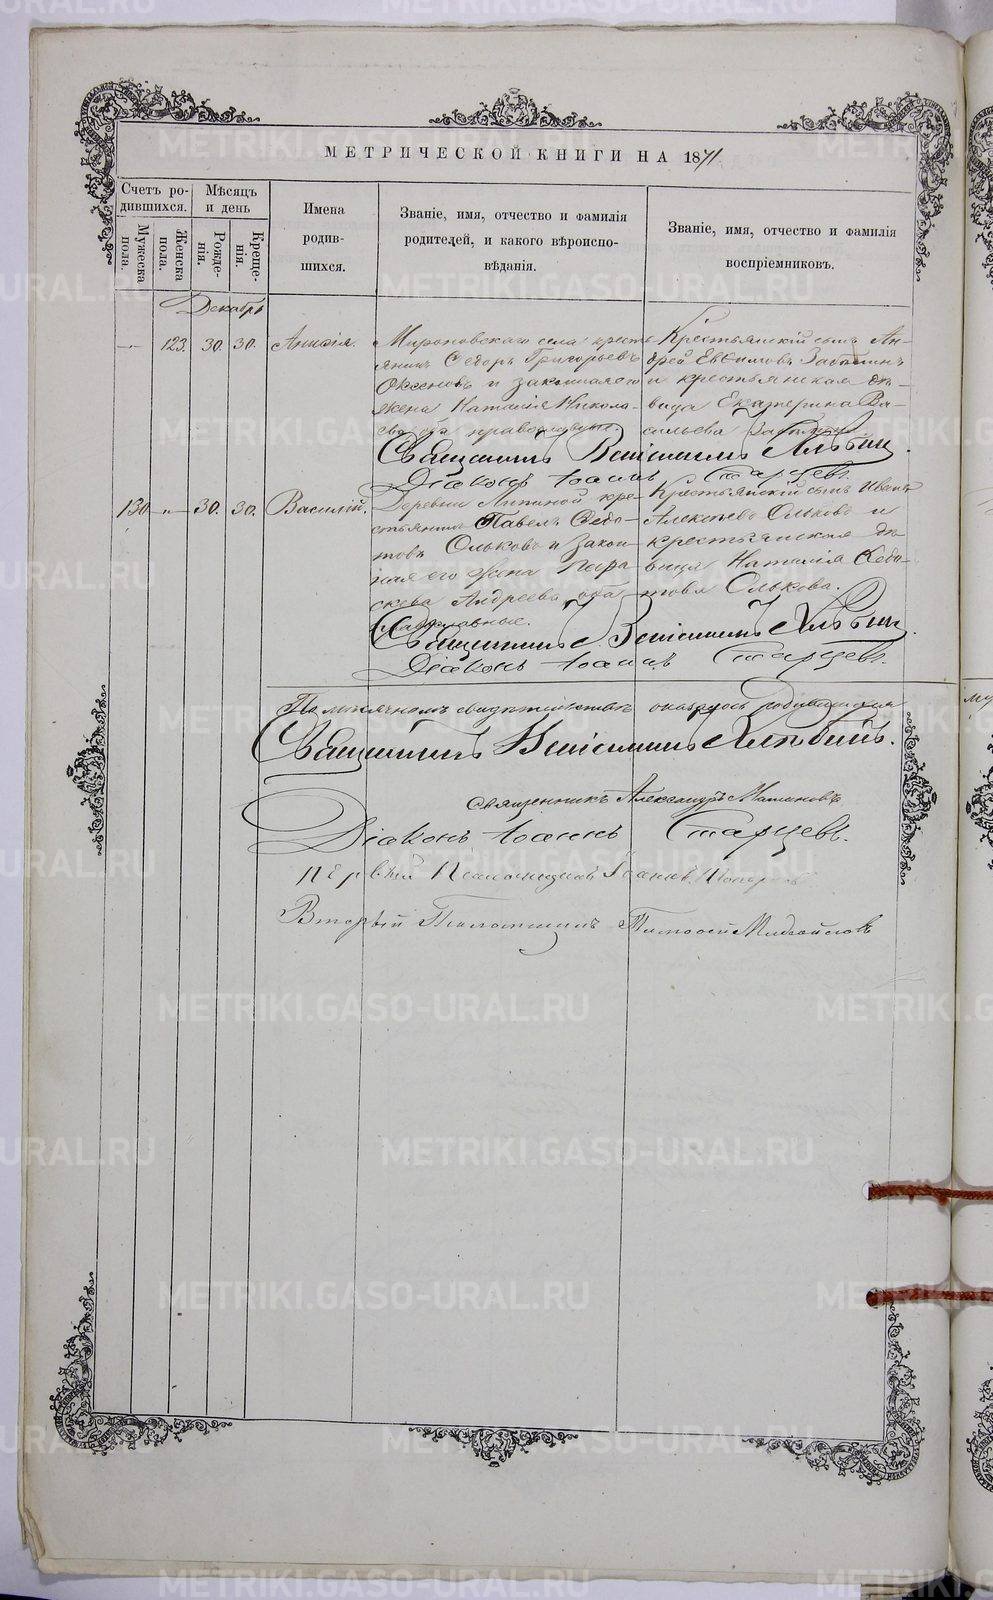 МЕТРИЧЕСКОЙ КНИГИ НА 1871
Счетъ ро-
дившихся.
Мужеска
пола.
Женска
пола.
Мѣсяцъ
и день
Рожде-
нія.
Креще-
нія.
Имена
родив-
шихся.
Званіе, имя, отчество и фамилія
родителей, и какого вѣроиспо-
вѣданія.
Званіе, имя, отчество и фамилія
воспріемниковъ.
Декабрь
— 123. 30. 30. Анисія.
Мироновскаго села кресть-
янинъ Ѳедоръ Григорьевъ
и законная его
жена Наталія Никола-
ева оба православные
Крестьянскій сынъ Ан-
дрей Евѳимовъ
и крестьянская дѣ-
вица Екатерина Ва-
сильева
Священникъ Веніаминъ
Діаконъ Іоаннъ Старцевъ.
130 -"- 30. 30. Василій.
Деревни Липиной кре-
стьянинъ Павелъ Ѳедо-
товъ Ольковъ и закон-
ная его жена Пара-
скева Андреева оба
православные.
Крестьянскій сынъ Иванъ
Алексѣевъ Ольковъ и
крестьянская дѣ-
вица Наталія Ѳедо-
това Олькова.
Священникъ Веніаминъ
Діаконъ Іоаннъ Старцевъ.
По свидѣтельствѣ оказалось
Священникъ Веніаминъ
Священникъ Александръ
Діаконъ Іоаннъ Старцевъ.
Первый Псаломщикъ Іоаннъ
Вторый Псаломщикъ
METRIKI.GASO-URAL.RU